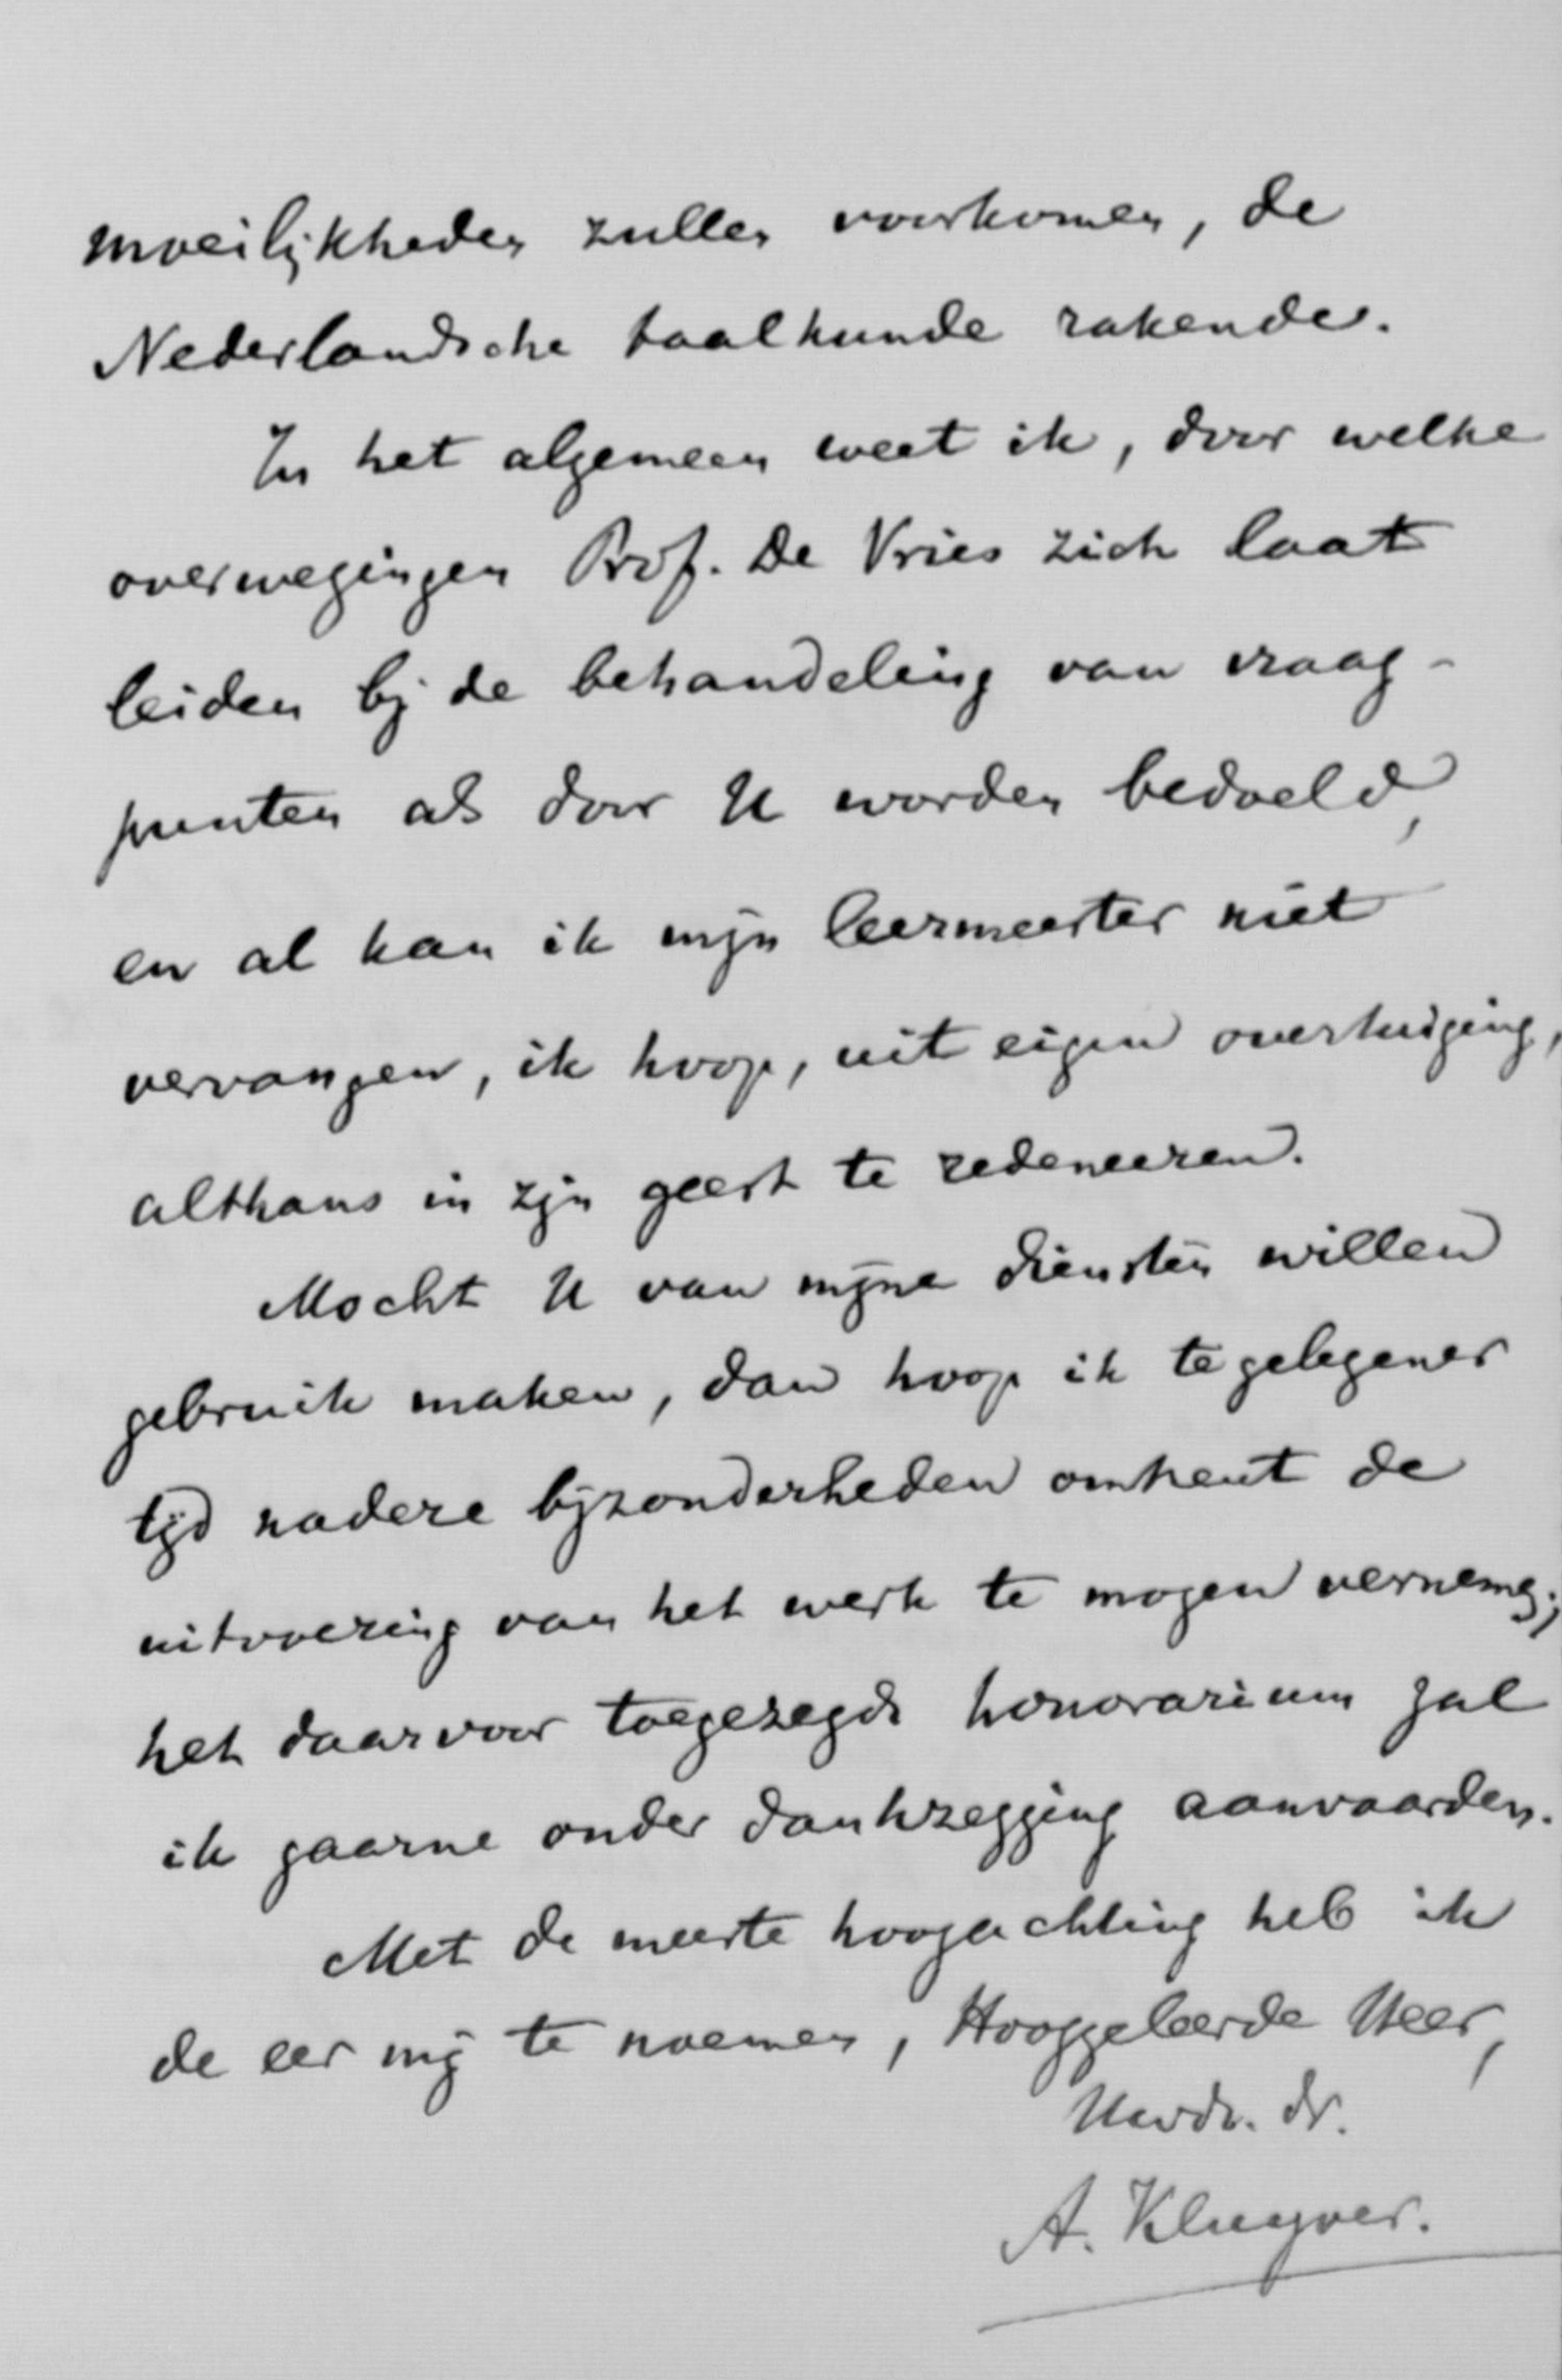 moeilijkheden zullen voorkomen, de
Nederlandsche taalkunde rakende.
In het algemeen weet ik, door welke
overwegingen Prof. De Vries zich laat
leiden bij de behandeling van vraag-
punten als door U worden bedoeld,
en al kan ik mijn leermeester niet
vervangen, ik hoop, uit eigen overtuiging,
althans in zijn geest te redeneeren.
Mocht U van mijne diensten willen
gebruik maken, dan hoop ik te gelegener
tijd nadere bijzonderheden omtrent de
uitvoering van het werk te mogen vernemen;
het daarvoor toegezegde honorarium zal
ik gaarne onder dankzegging aanvaarden.
Met de meeste hoogachting heb ik
de eer mij te noemen, Hooggeleerde Heer,
Uwdr. dr.
A. Kluyver.